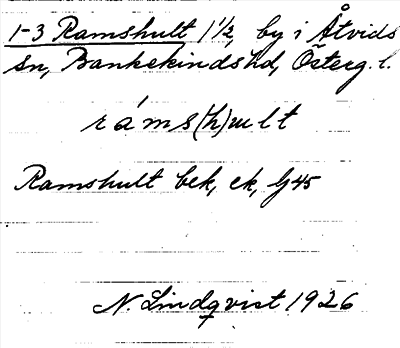 1-3 Ramshult 1 1/2, by i Åtvids
sn, Bankekinds hd, Österg. l.
ráms(h)ult
Ramshult bek, ek, G45
N. Lindqvist 1926